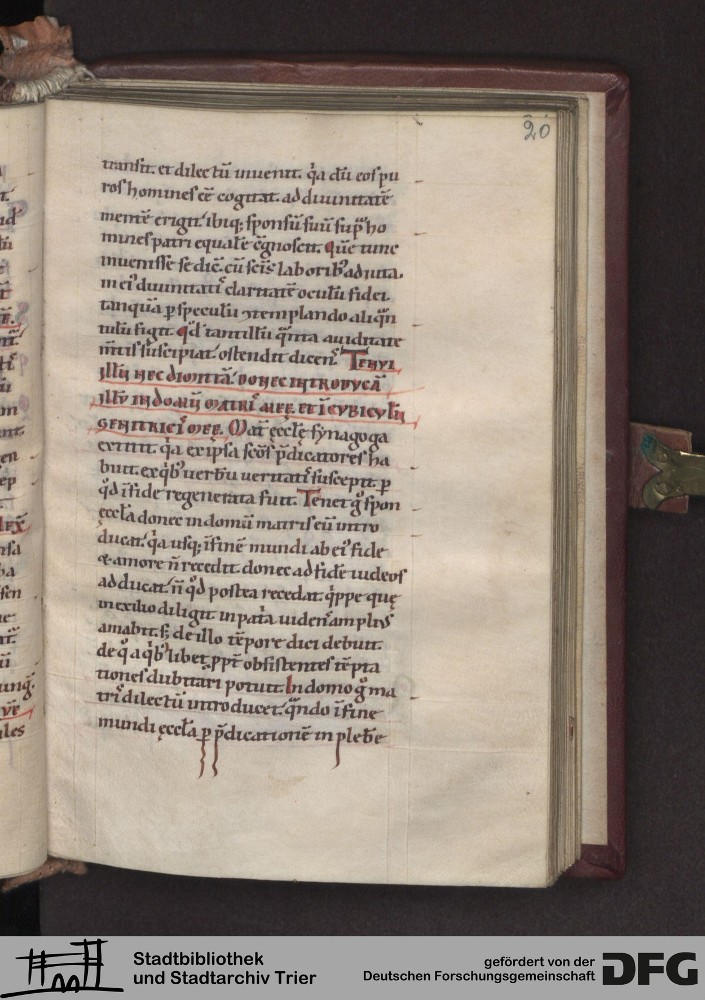 20
transit. et dilectū inuenit. q̇a dū eos pu
ros homines eē cogitat. ad diuinitatē
mentē erigit. ibiq; sponsū suū sup̄ ho
mines patri equalē ꝯgnoscit. Quē tunc
inuenisse se dic̄. cū scīs laborib; adiuta.
in ei᾽ diuinitatis claritatē oculū fidei
tanquā ꝑ speculū ꝯtemplando aliqn̄
tulū figit. Qd̄ tantillū qn̄ta auiditate
m̄tis suscipiat. ostendit dicens. Tenui
illū nec dimittā. donec introducā
illū in domū matris meę. et ī cubiculū
genitricis meę. Mat̄ ęcclę synagoga
extitit. q̇a ex ipsa scōs p̄dicatores ha
buit. ex qb; uerbū ueritatis suscepit. ꝑ
qd̄ ī fide regenerata fuit. Tenet g̊ spon
ęccła donec in domū matris eū intro
ducat. q̇a usq; ī finē mundi ab ei᾽ fide
& amore n̄ recedit. donec ad fidē iudeos
adducat. n̄ qd̄ postea recedat. q̇ppe quę
in exilio diligit. in pat̄a uidens amplius
amabit. s; de illo tēpore dici debuit.
de q̊ a qb;libet. ꝓpt̄ obsistentes tēpta
tiones dubitari potuit. In domo g̊ ma
tris dilectū introducet. qn̄do ī fine
mundi ęccła ꝑ p̄dicationē in plebē
Stadtbibliothek
und Stadtarchiv Trier
gefördert von der
Deutschen Forschungsgemeinschaft
DFG